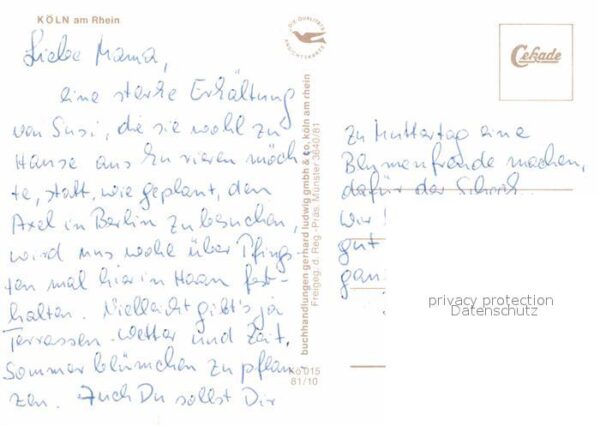 KÖLN am Rhein
DIE QUALITÄTS
ANSICHTSKARTE
Cekade
Liebe Mama,
eine starke Erkältung
von Susi, die sie wohl zu
Hause aus kurieren möch
te, statt, wie geplant, den
Axel in Berlin zu besuchen,
wird uns wohl über Pfings-
ten mal hier in Haan fest-
halten. Vielleicht gibt's ja
Terrassen-Wetter und Zeit,
Sommerblümchen zu pflan
zen. Auch Du sollst Dir
buchhandlungen gerhard ludwig gmbh & co, köln am rhein
Freigeg. d. Reg.-Präs. Münster 3640/81
Kö 015
81/10
zu Muttertag eine
Blumenfreude machen,
dafür der Scheck.
Wir
gut
gan
privacy protection
Datenschutz